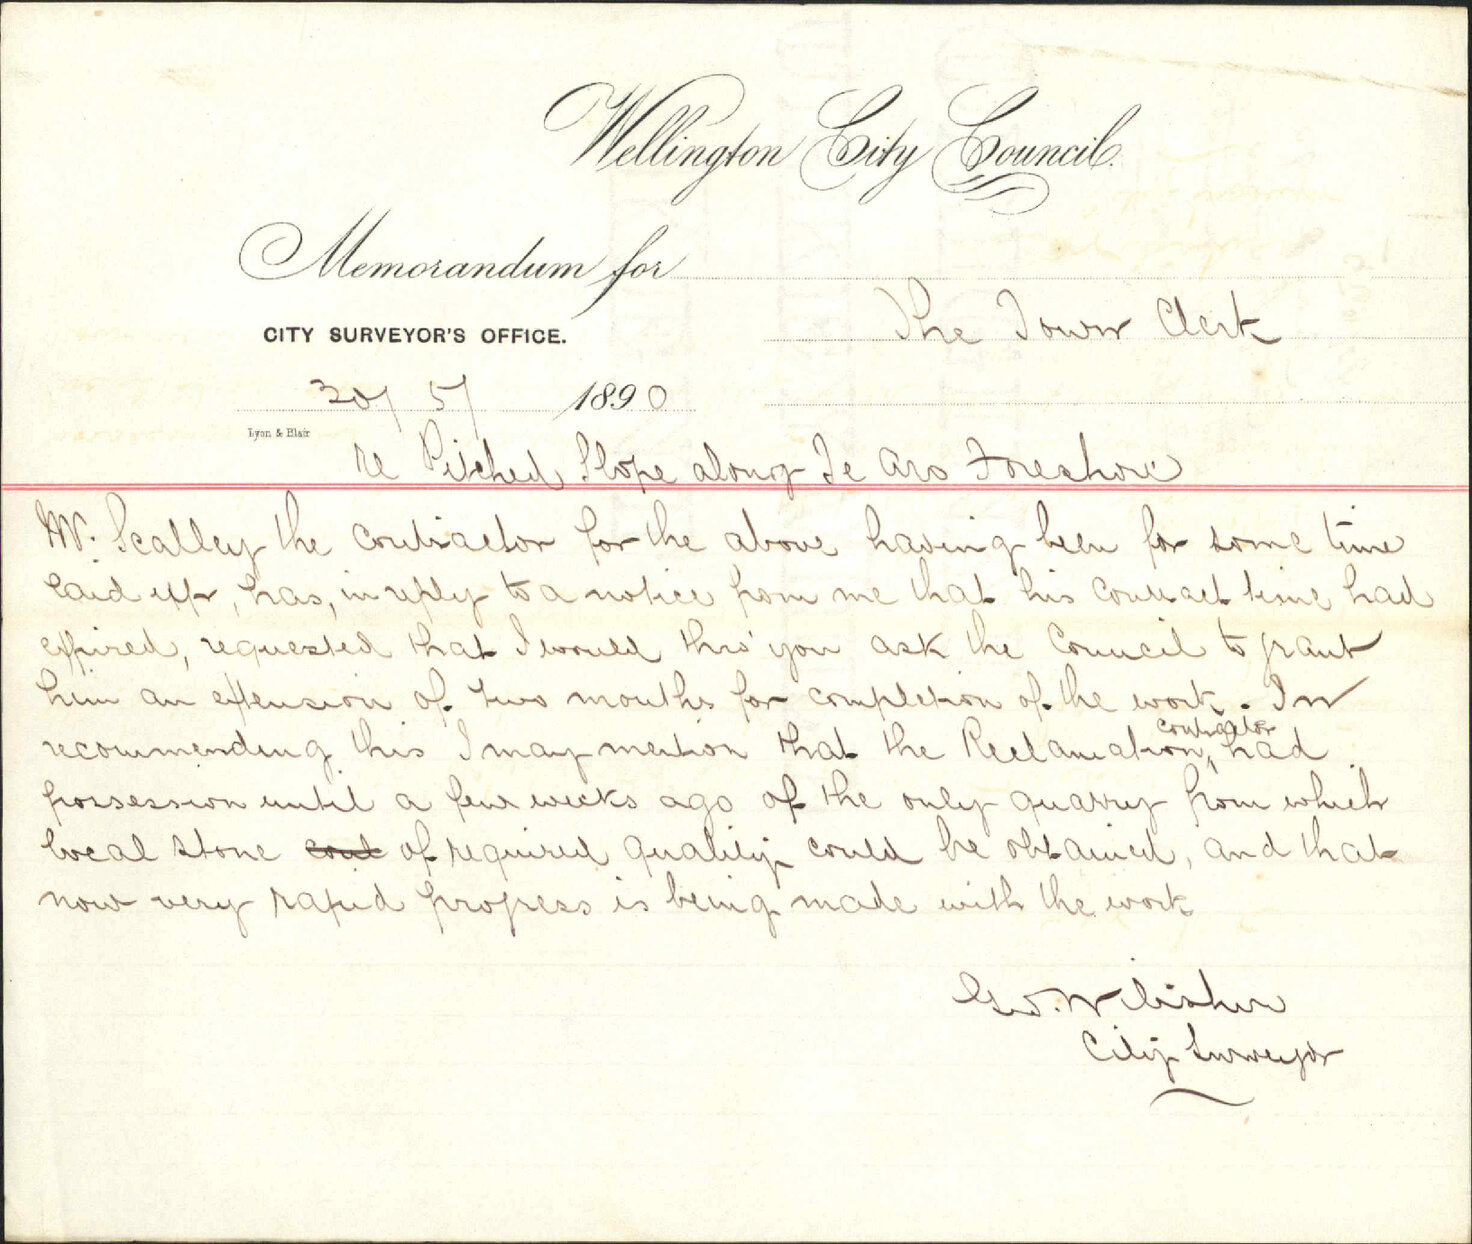 Wellington City Council.
Memorandum for
The Town Clerk
CITY SURVEYOR'S OFFICE.
30/ 5/ 1890
Lyon & Blair
re Pitched Slope along Te Aro Foreshore
Mr. Scalley the contractor for the above having been for some time
laid up, has, in reply to a notice from me that his contract time had
expired, requested that I would thro' you ask the Council to grant
him an extension of two months for completion of the work. In
recommending this I may mention that the Reclamation contractor had
possession until a few weeks ago of the only quarry from which
local stone coul of required quality could be obtained, and that
now very rapid progress is being made with the work
Geo. Wibisher
City Surveyor